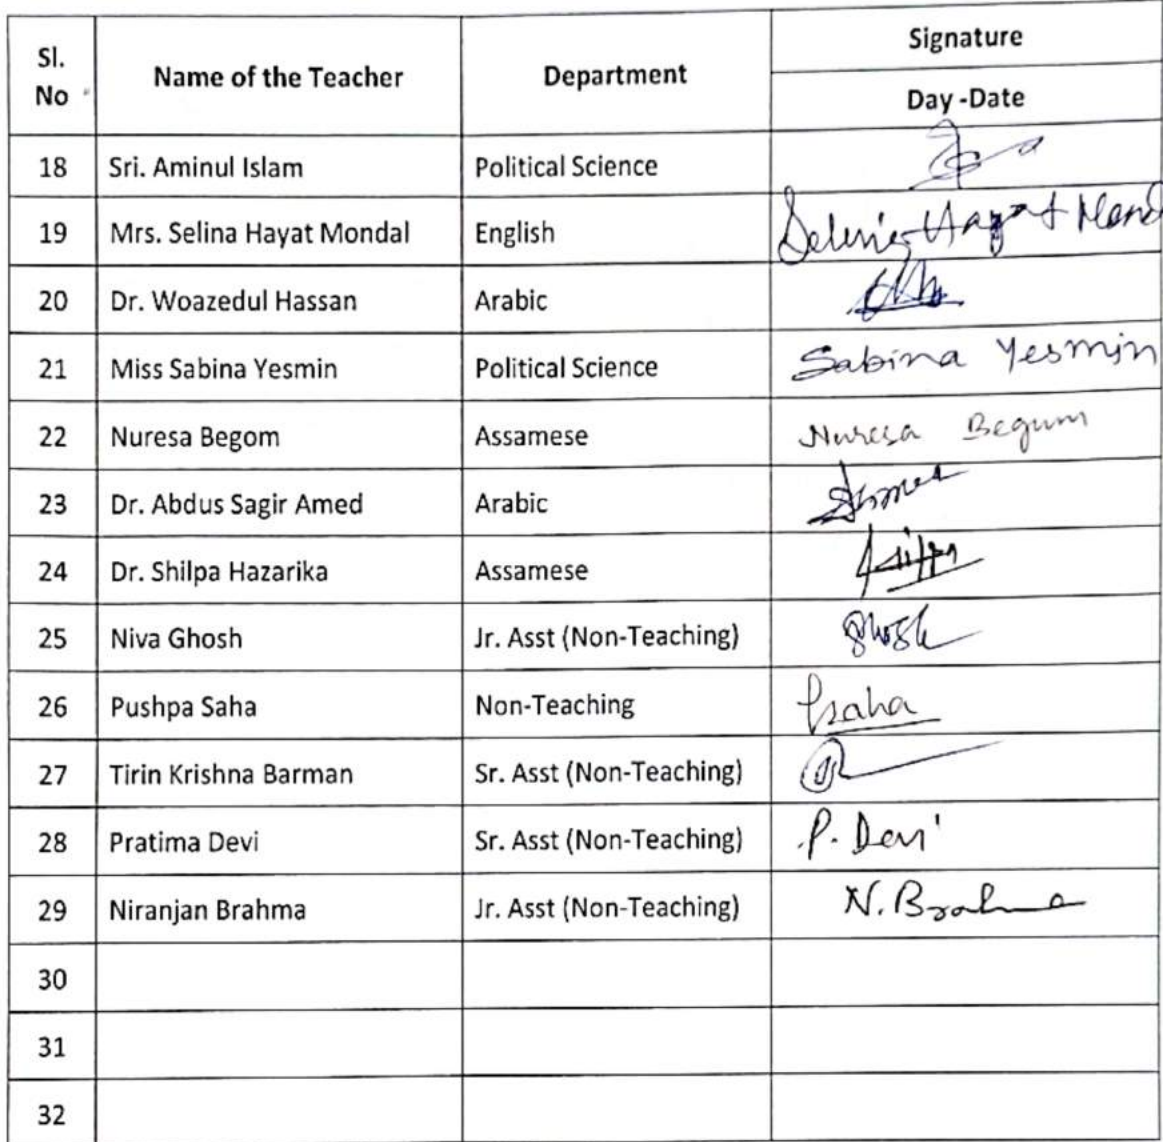 Sl. No Name of the Teacher Department Signature
Day -Date
18 Sri. Aminul Islam Political Science
19 Mrs. Selina Hayat Mondal English Selina Hayat Mond
20 Dr. Woazedul Hassan Arabic
21 Miss Sabina Yesmin Political Science Sabina Yesmin
22 Nuresa Begom Assamese Nuresa Begum
23 Dr. Abdus Sagir Amed Arabic
24 Dr. Shilpa Hazarika Assamese
25 Niva Ghosh Jr. Asst (Non-Teaching) Ghosh
26 Pushpa Saha Non-Teaching Psaha
27 Tirin Krishna Barman Sr. Asst (Non-Teaching)
28 Pratima Devi Sr. Asst (Non-Teaching) P. Devi
29 Niranjan Brahma Jr. Asst (Non-Teaching) N. Brahma
30
31
32